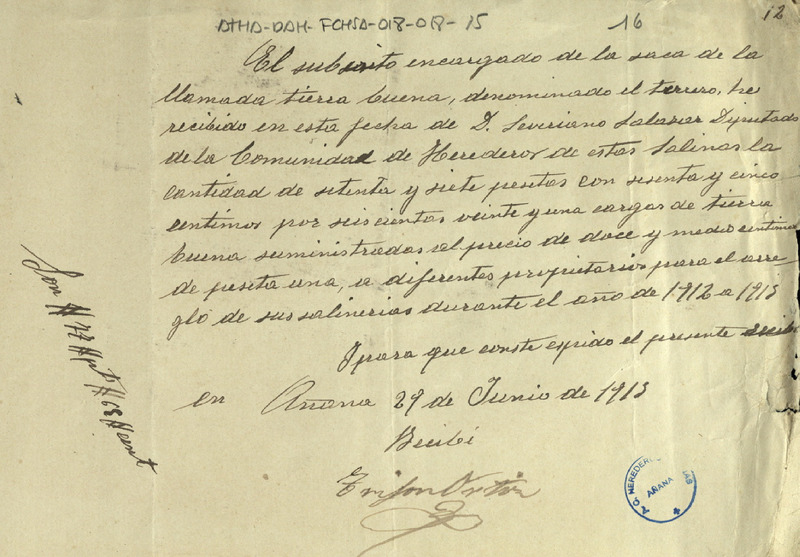 ATHA-DAH-FCHSA-018-018-15
16
12
El subscrito encargado de la saca de la
llamada tierra buena, denominado el terrero, he
recibido en esta fecha de D. Severiano Salazar Diputado
de la Comunidad de Herederos de estas Salinas la
cantidad de setenta y siete pesetas con sesenta y cinco
centimos por seiscientas veinte y una cargas de tierra
buena suministradas al precio de doce y medio centimos
de peseta una, a diferentes propietarios para el arre
glo de sus salinerias durante el año de 1912 a 1913
Y para que conste expido el presente recibo
en Añana 29 de Junio de 1913
Recibí
Trifon Ortiz
Son # 77 # pts # 65 # cent
HEREDEROS
AÑANA